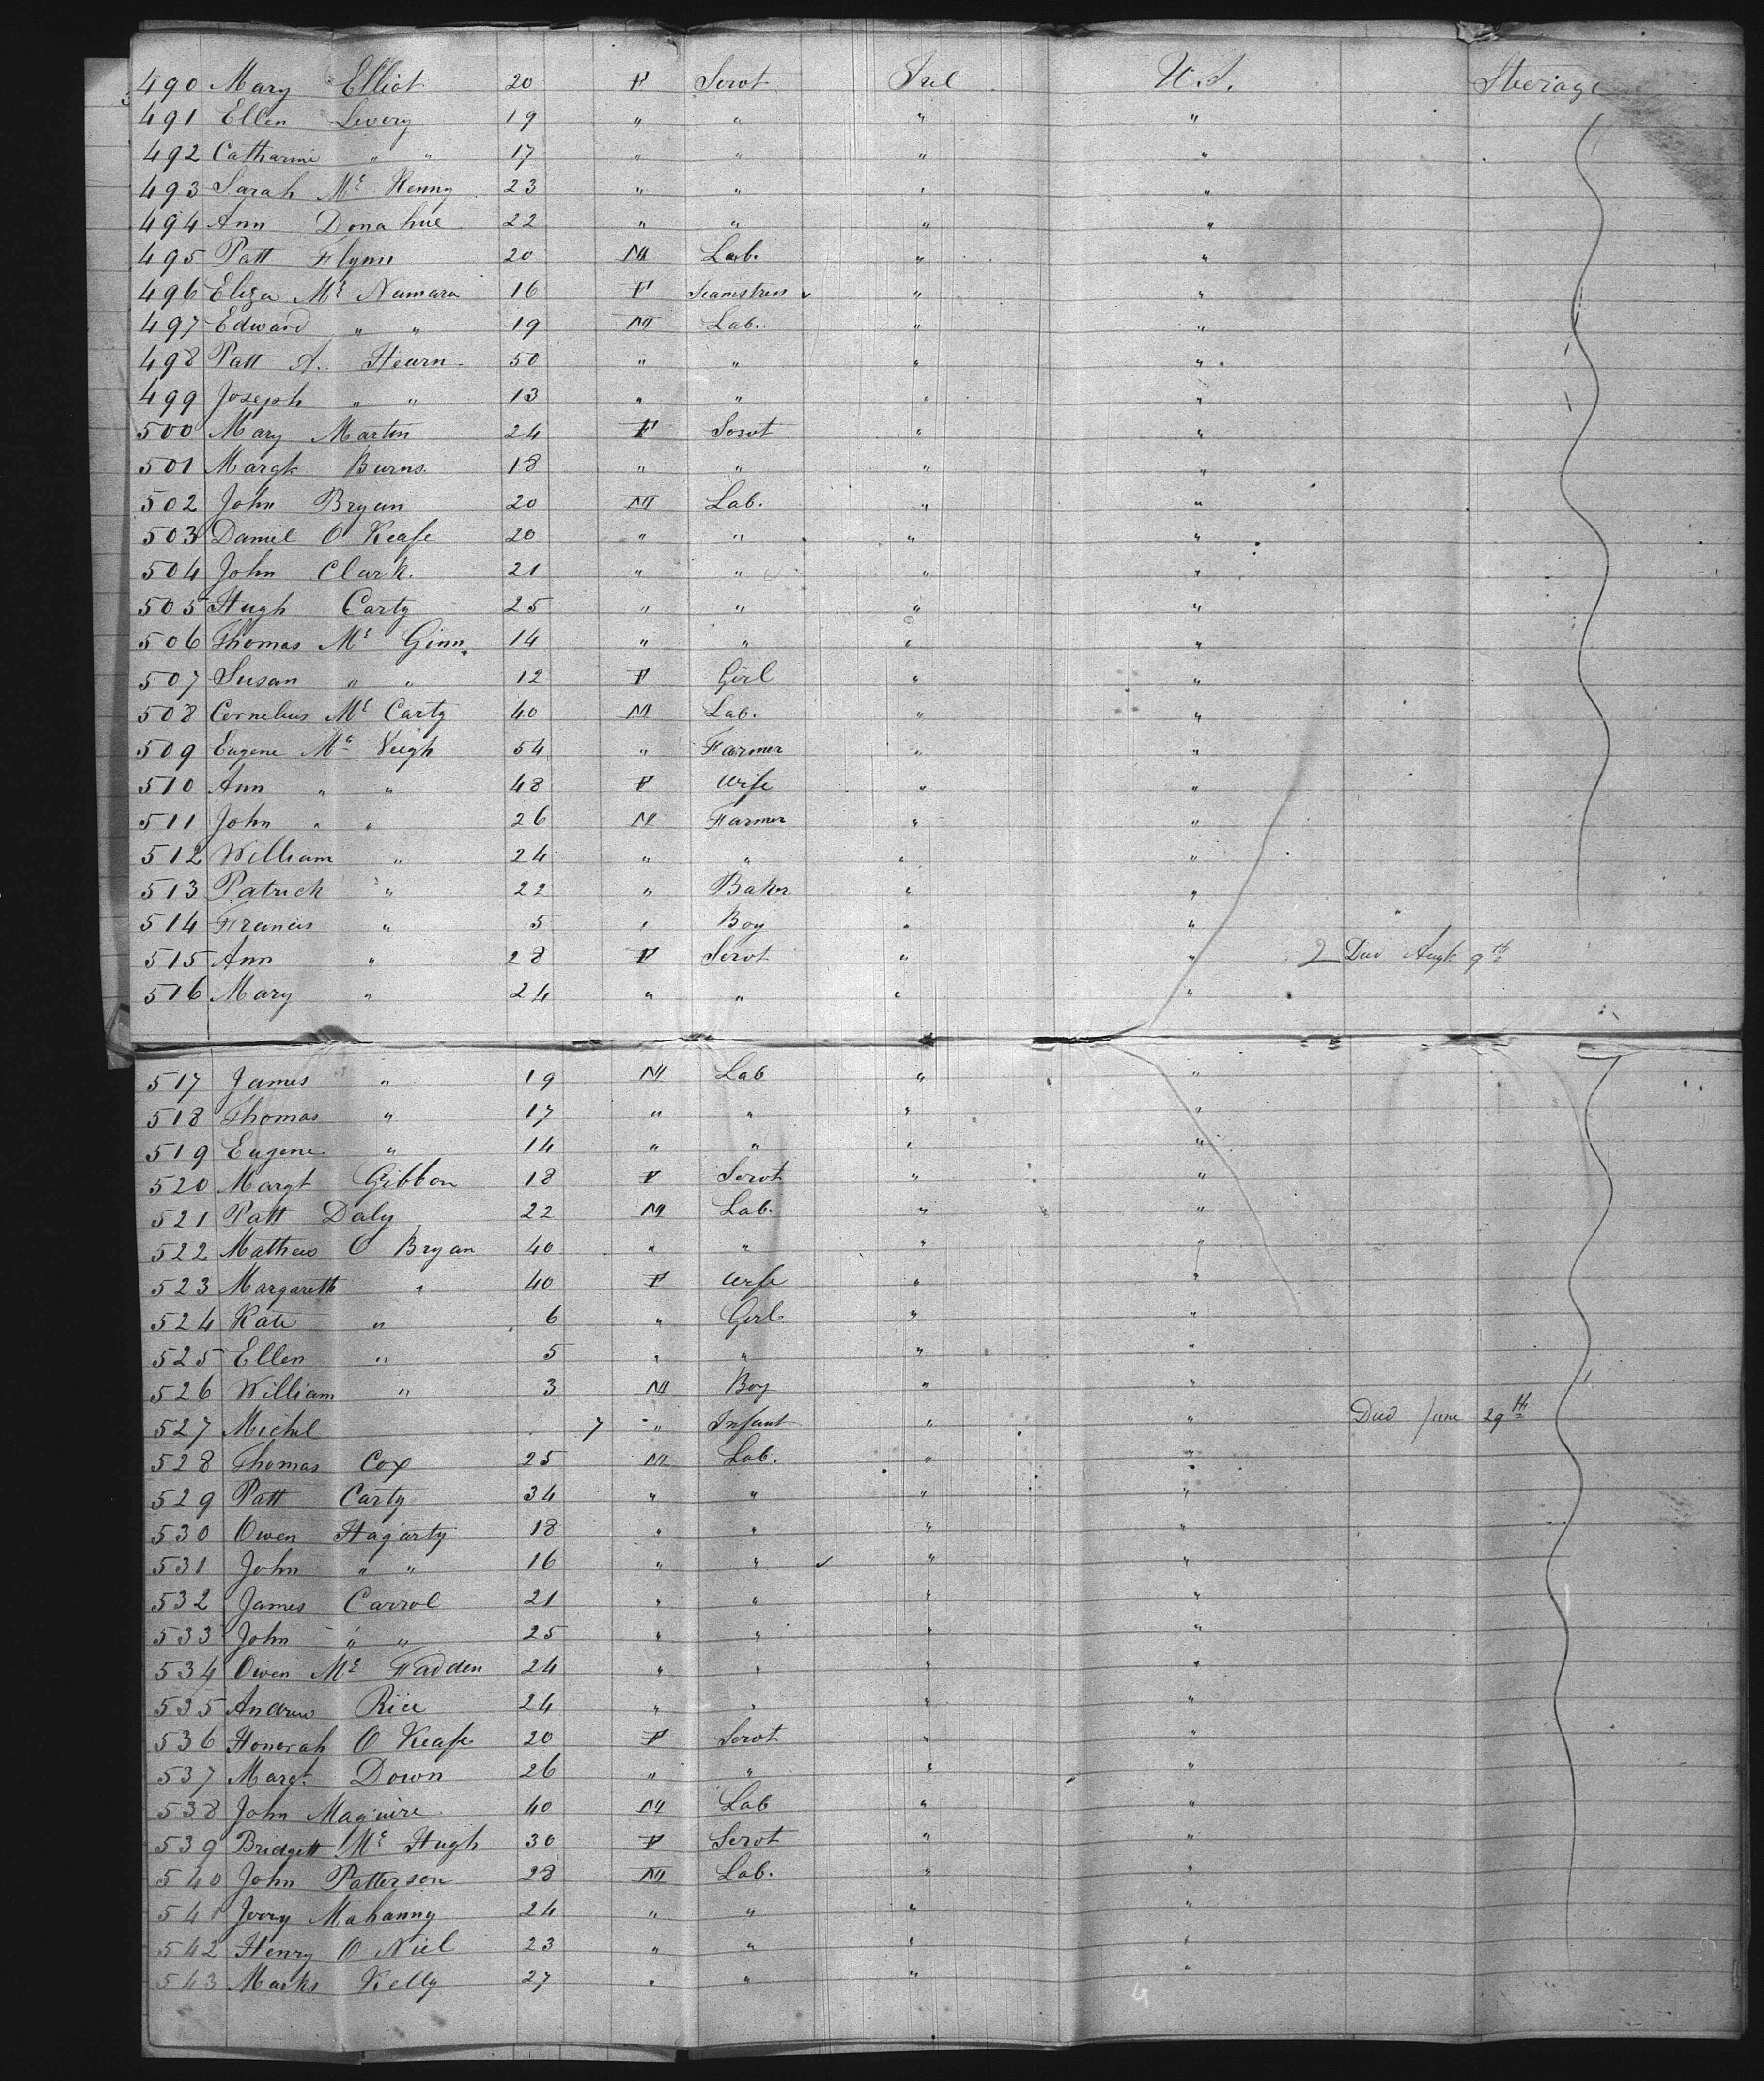 490 Mary Elliot 20 F Servt Irel U.S. Sterage
491 Ellen Levery 19 " " " "
492 Catharine " " 17 " " " "
493 Sarah Mc Kenny 23 " " " "
494 Ann Donahue 22 " " " "
495 Patt Flynn 20 M Lab. " "
496 Eliza Mc Namara 16 F Seamstress " "
497 Edward " " 19 M Lab. " "
498 Patt A. Hearn 50 " " " "
499 Joseph " " 13 " " " "
500 Mary Martin 24 F Servt " "
501 Margt Burns 18 " " " "
502 John Bryan 20 M Lab. " "
503 Daniel O Keafe 20 " " " "
504 John Clark. 21 " " " "
505 Hugh Carty 25 " " " "
506 Thomas Mc Ginn 14 " " " "
507 Susan " " 12 F Girl " "
508 Cornelius Mc Carty 40 M Lab. " "
509 Eugene Mc Veigh 54 " Farmer " "
510 Ann " " 48 F Wife " "
511 John " " 26 M Farmer " "
512 William " 24 " " " "
513 Patrick " 22 " Baker " "
514 Francis " 5 " Boy " "
515 Ann " 28 F Servt " " Died Augt 9th
516 Mary " 24 " " " "
517 James " 19 M Lab " "
518 Thomas " 17 " " " "
519 Eugene " 14 " " " "
520 Margt Gibbon 18 F Servt " "
521 Patt Daly 22 M Lab. " "
522 Mathew O Bryan 40 " " " "
523 Margareth " 40 F Wife " "
524 Kate " 6 " Girl " "
525 Ellen " 5 " " " "
526 William " 3 M Boy " "
527 Michel 7 " Infant " " Died June 29th
528 Thomas Cox 25 M Lab. " "
529 Patt Carty 34 " " " "
530 Owen Hagarty 18 " " " "
531 John " " 16 " " " "
532 James Carrol 21 " " " "
533 John " " 25 " " " "
534 Owen Mc Fadden 24 " " " "
535 Andrew Rice 24 " " " "
536 Honorah O Keafe 20 F Servt " "
537 Margt. Down 26 " " " "
538 John Maguire 40 M Lab " "
539 Bridgett Mc Hugh 30 F Servt " "
540 John Patterson 28 M Lab. " "
541 Jerry Mahanny 24 " " " "
542 Henry O Niel 23 " " " "
543 Marks Kelly 27 " " " "